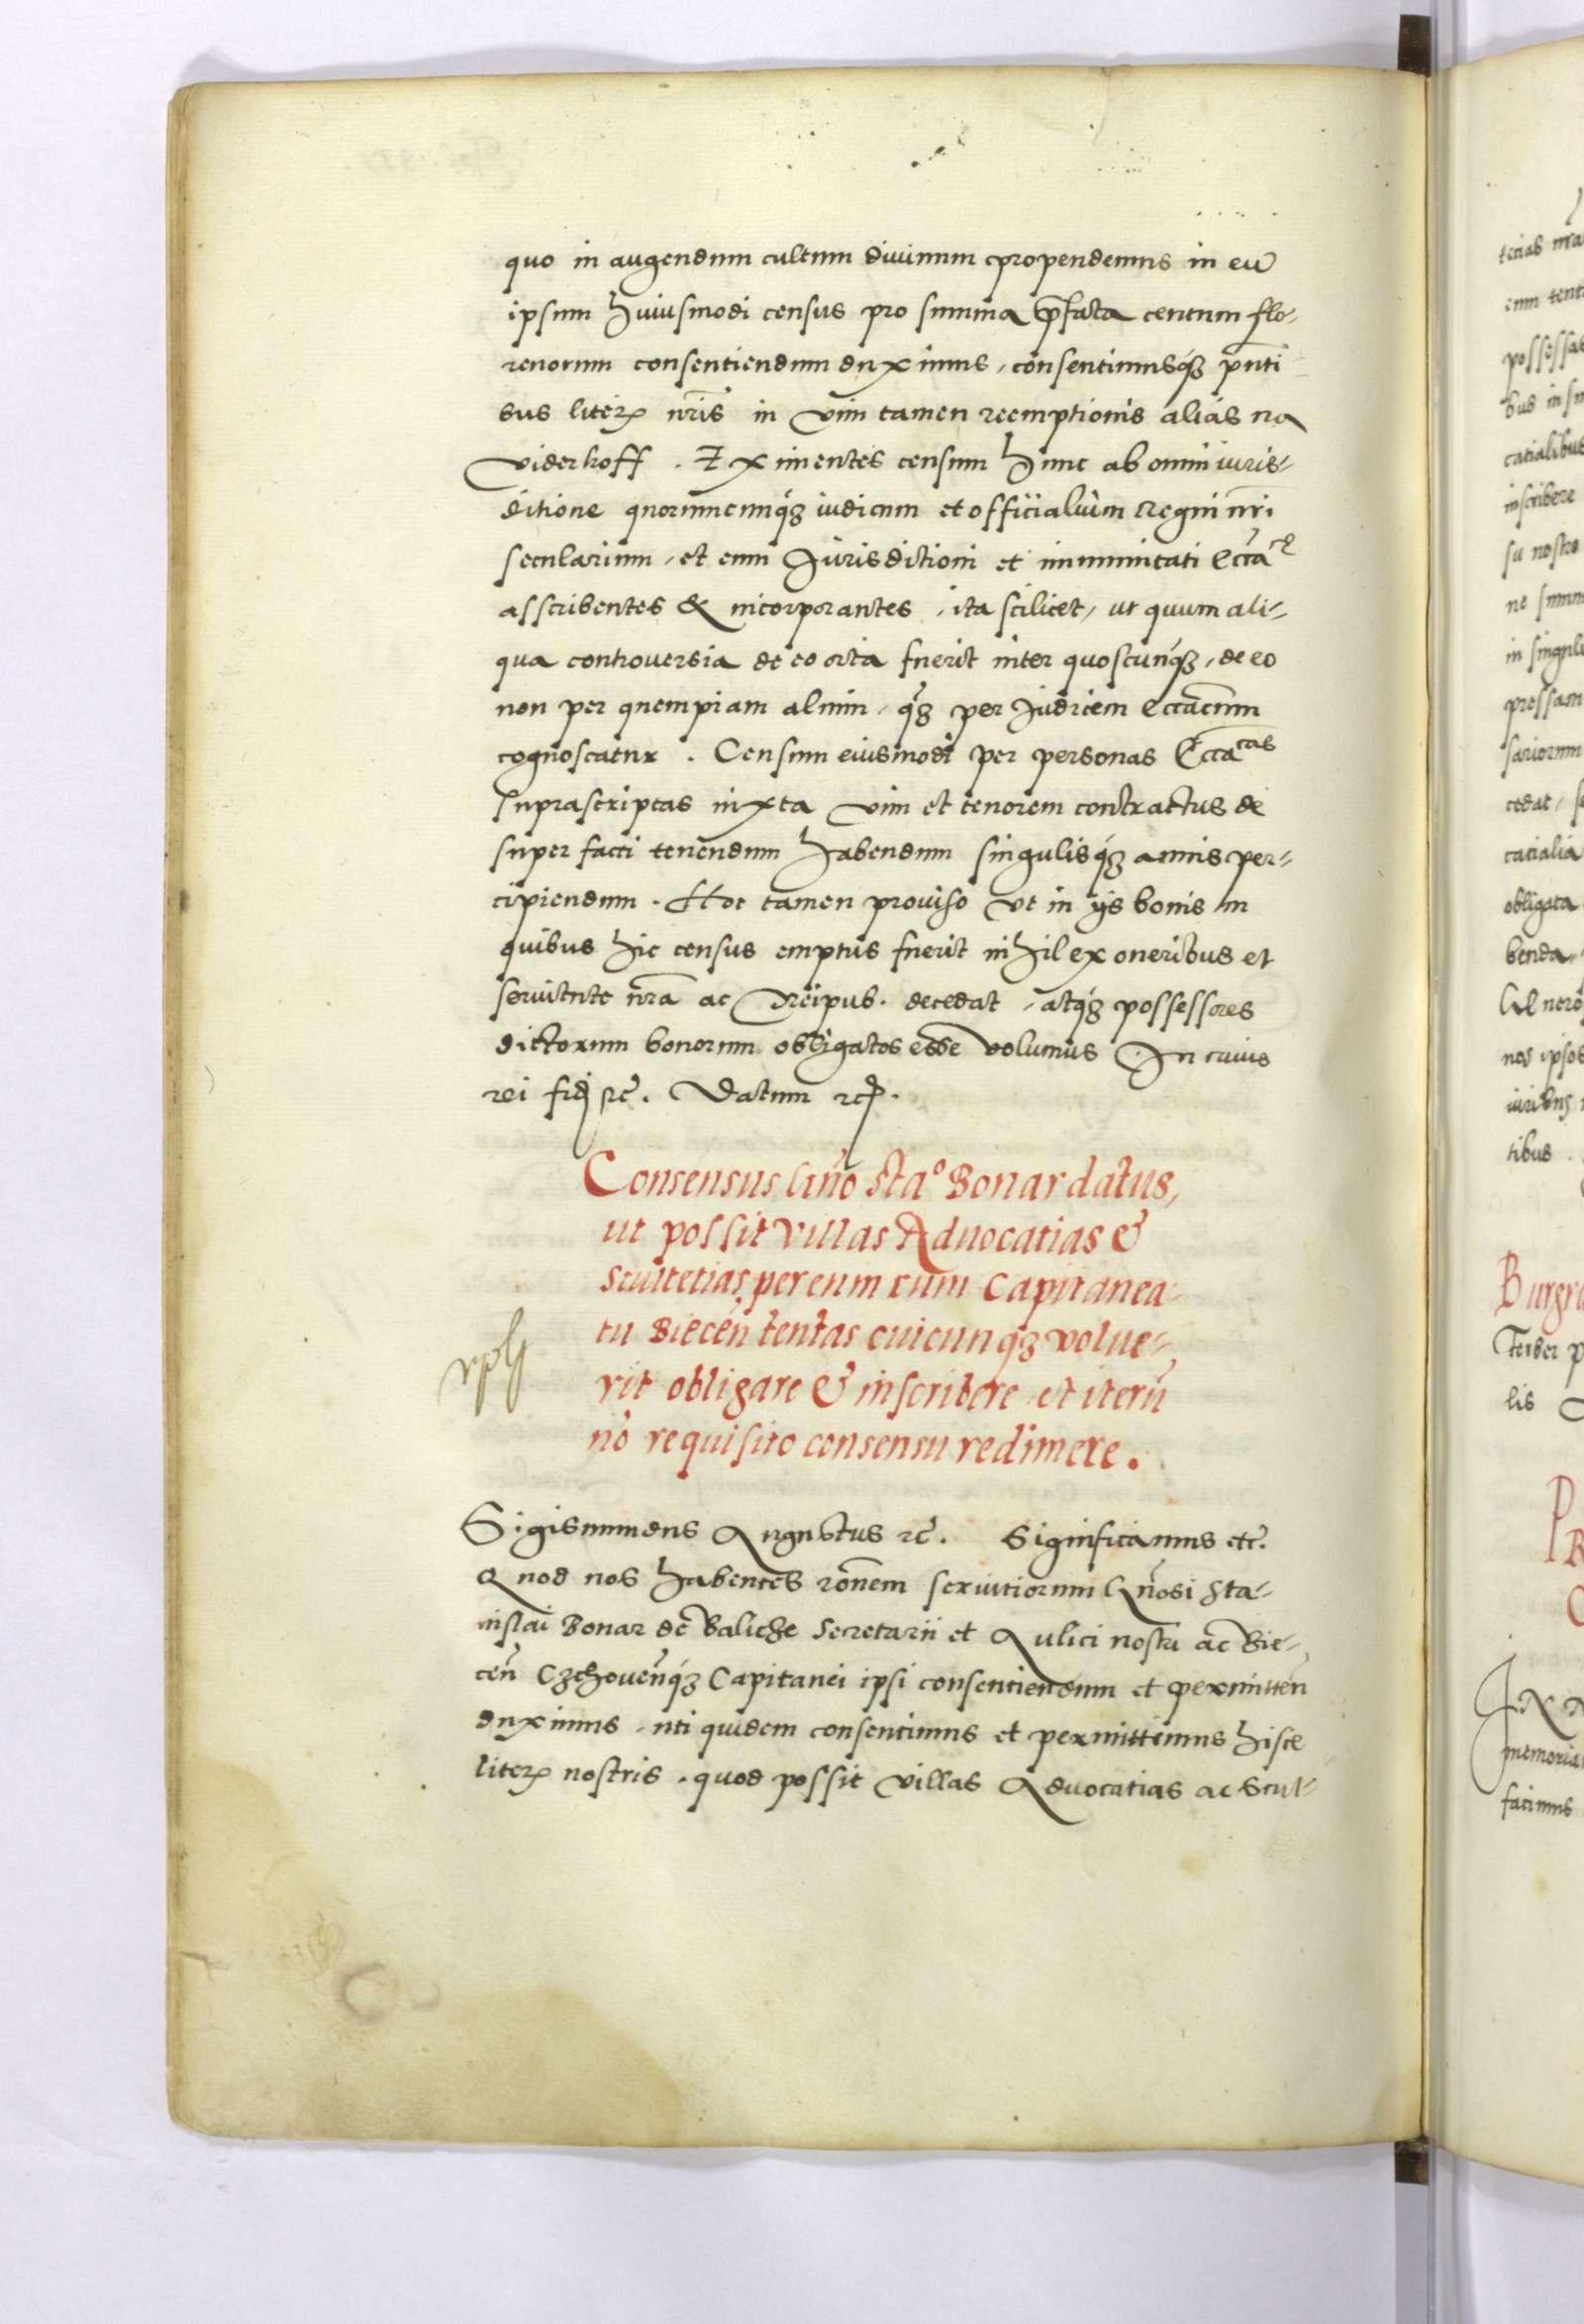 quo in augendum cultum diuinum propendemus in eũ
ipsum huiusmodi census pro summa p̃facta centum flo-
renorum consentiendum duximus, consentimusq́ꝫ pñti
bus literꝭ nr̃is in vim tamen reemptionis aliàs na
viderkoff. Eximentes censum hunc ab omni iuris-
ditione quorumcumq́ꝫ iudicum et officialium Regni nr̃i
secularium, et eum Jurisditioni et immunitati Ecc̃ace
asscribentes & incorporantes, ita scilicet, ut quum ali-
qua controuersia de eo orta fuerit inter quoscunq́ꝫ, de eo
non per quempiam alium, q̃ꝫ per Judicem Ecc̃acum
cognoscatur. Censum eiusmodi per personas Ecc̃acas
suprascriptas iuxta vim et tenorem contractus de
super facti tenendum habendum singulisq́ꝫ annis per-
cipiendum. Hoc tamen prouiso vt in ijs bonis in
quibus hic census emptus fuerit nihil ex oneribus et
seruitute nr̃a ac Reipub. decedat, atq́ꝫ possessores
dictorum bonorum obligatos esse volumus In cuius
rei fidẽ ꝛc̃. Datum ꝛc̃.
Consensus Gño Stao Bonar datus,
ut possit villas Aduocatias &
Scultetias per eum cum Capitanea-
tu Biecen̄ tentas cuicunq́ꝫ volue-
rit obligare & inscribere et iterũ
nõ requisito consensu redimere.
Sigismundus Augustus ꝛc̃. Significamus etc̃.
Quod nos habentes rõnem seruitiorum Gñosi Sta-
nislai Bonar de Baliche Secretarii et Aulici nostri ac Bie-
cen̄ Czchouen̄q́ꝫ Capitanei ipsi consentiendum et permitten̄
duximus, uti quidem consentimus et permittimus hisce
literꝭ nostris, quod possit villas Aduocatias ac Scul-